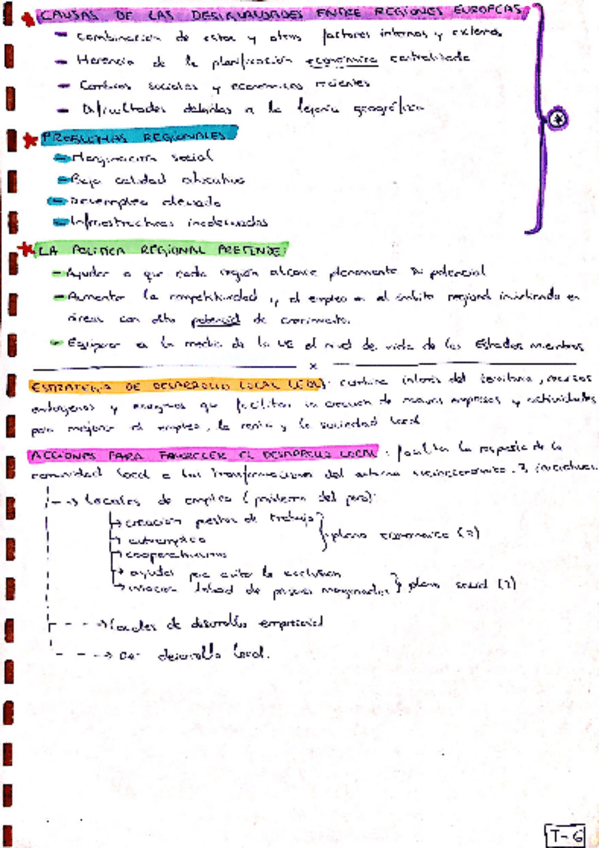 * CAUSAS DE LAS DESIGUALDADES ENTRE REGIONES EUROPEAS
- Combinación de estos y otros factores internos y externos
- Herencia de la planificación económica centralizada
- Cambios sociales y económicos recientes
- Dificultades debidas a la lejanía geográfica
* PROBLEMAS REGIONALES
- Marginación social
- Baja calidad educativa
- Desempleo elevado
- Infraestructuras inadecuadas
* LA POLITICA REGIONAL PRETENDE:
- Ayudar a que cada región alcance plenamente su potencial
- Aumentar la competitividad y el empleo en el ámbito regional invirtiendo en
áreas con alto potencial de crecimiento.
- Equiparar a la media de la UE el nivel de vida de los Estados miembros
x
ESTRATEGIA DE DESARROLLO LOCAL : interés del territorio, recursos
endógenos y exógenos que facilitan la creación de nuevas empresas y actividades
para mejorar el empleo, la renta y la sociedad local
ACCIONES PARA FAVORECER EL DESARROLLO LOCAL : facilitar la respuesta de la
comunidad local a las transformaciones del sistema socioeconómico. 3 iniciativas.
--> Locales de empleo (problema del paro):
→ creación puestos de trabajo
→ autoempleo } plano económico (3)
→ cooperativismo
→ ayudas para evitar la exclusión
→ laboral de personas marginadas } plano social (2)
--> Locales de desarrollo empresarial
--> De desarrollo local.
T-6